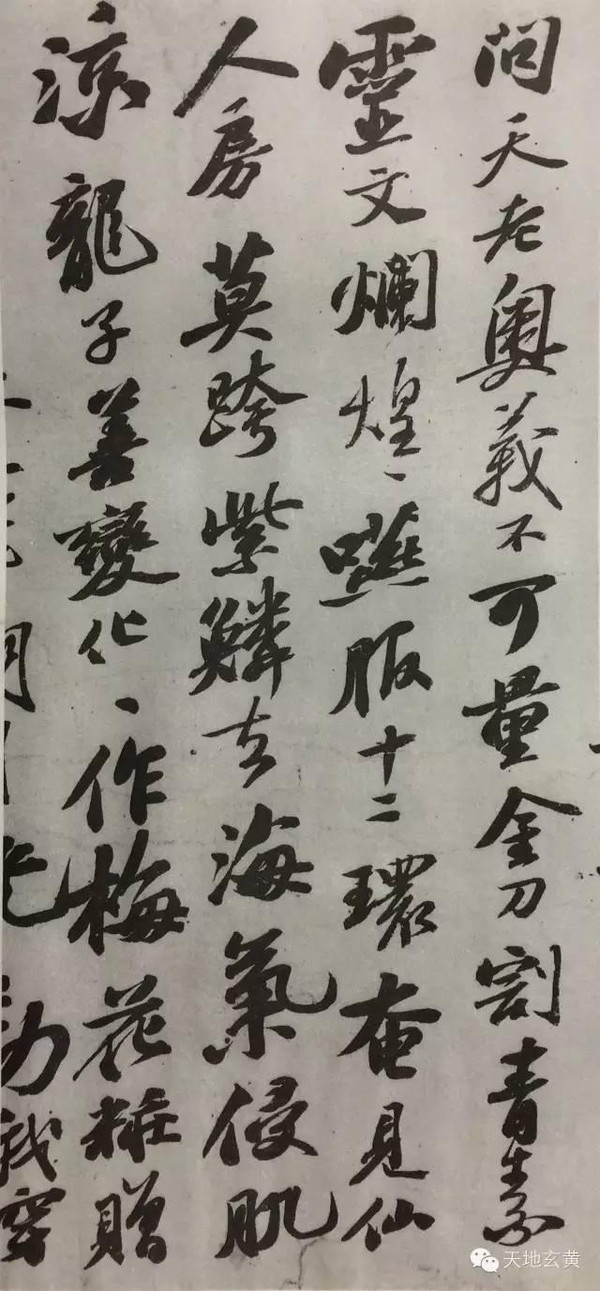 問天老奧義不可量金刀割青素
靈文爛煌、嚥服十二環奄見仙
人房莫跨紫鱗去海氣侵肌
涼龍子善變化、作梅花粧贈
明月光勸我穿
天地玄黄